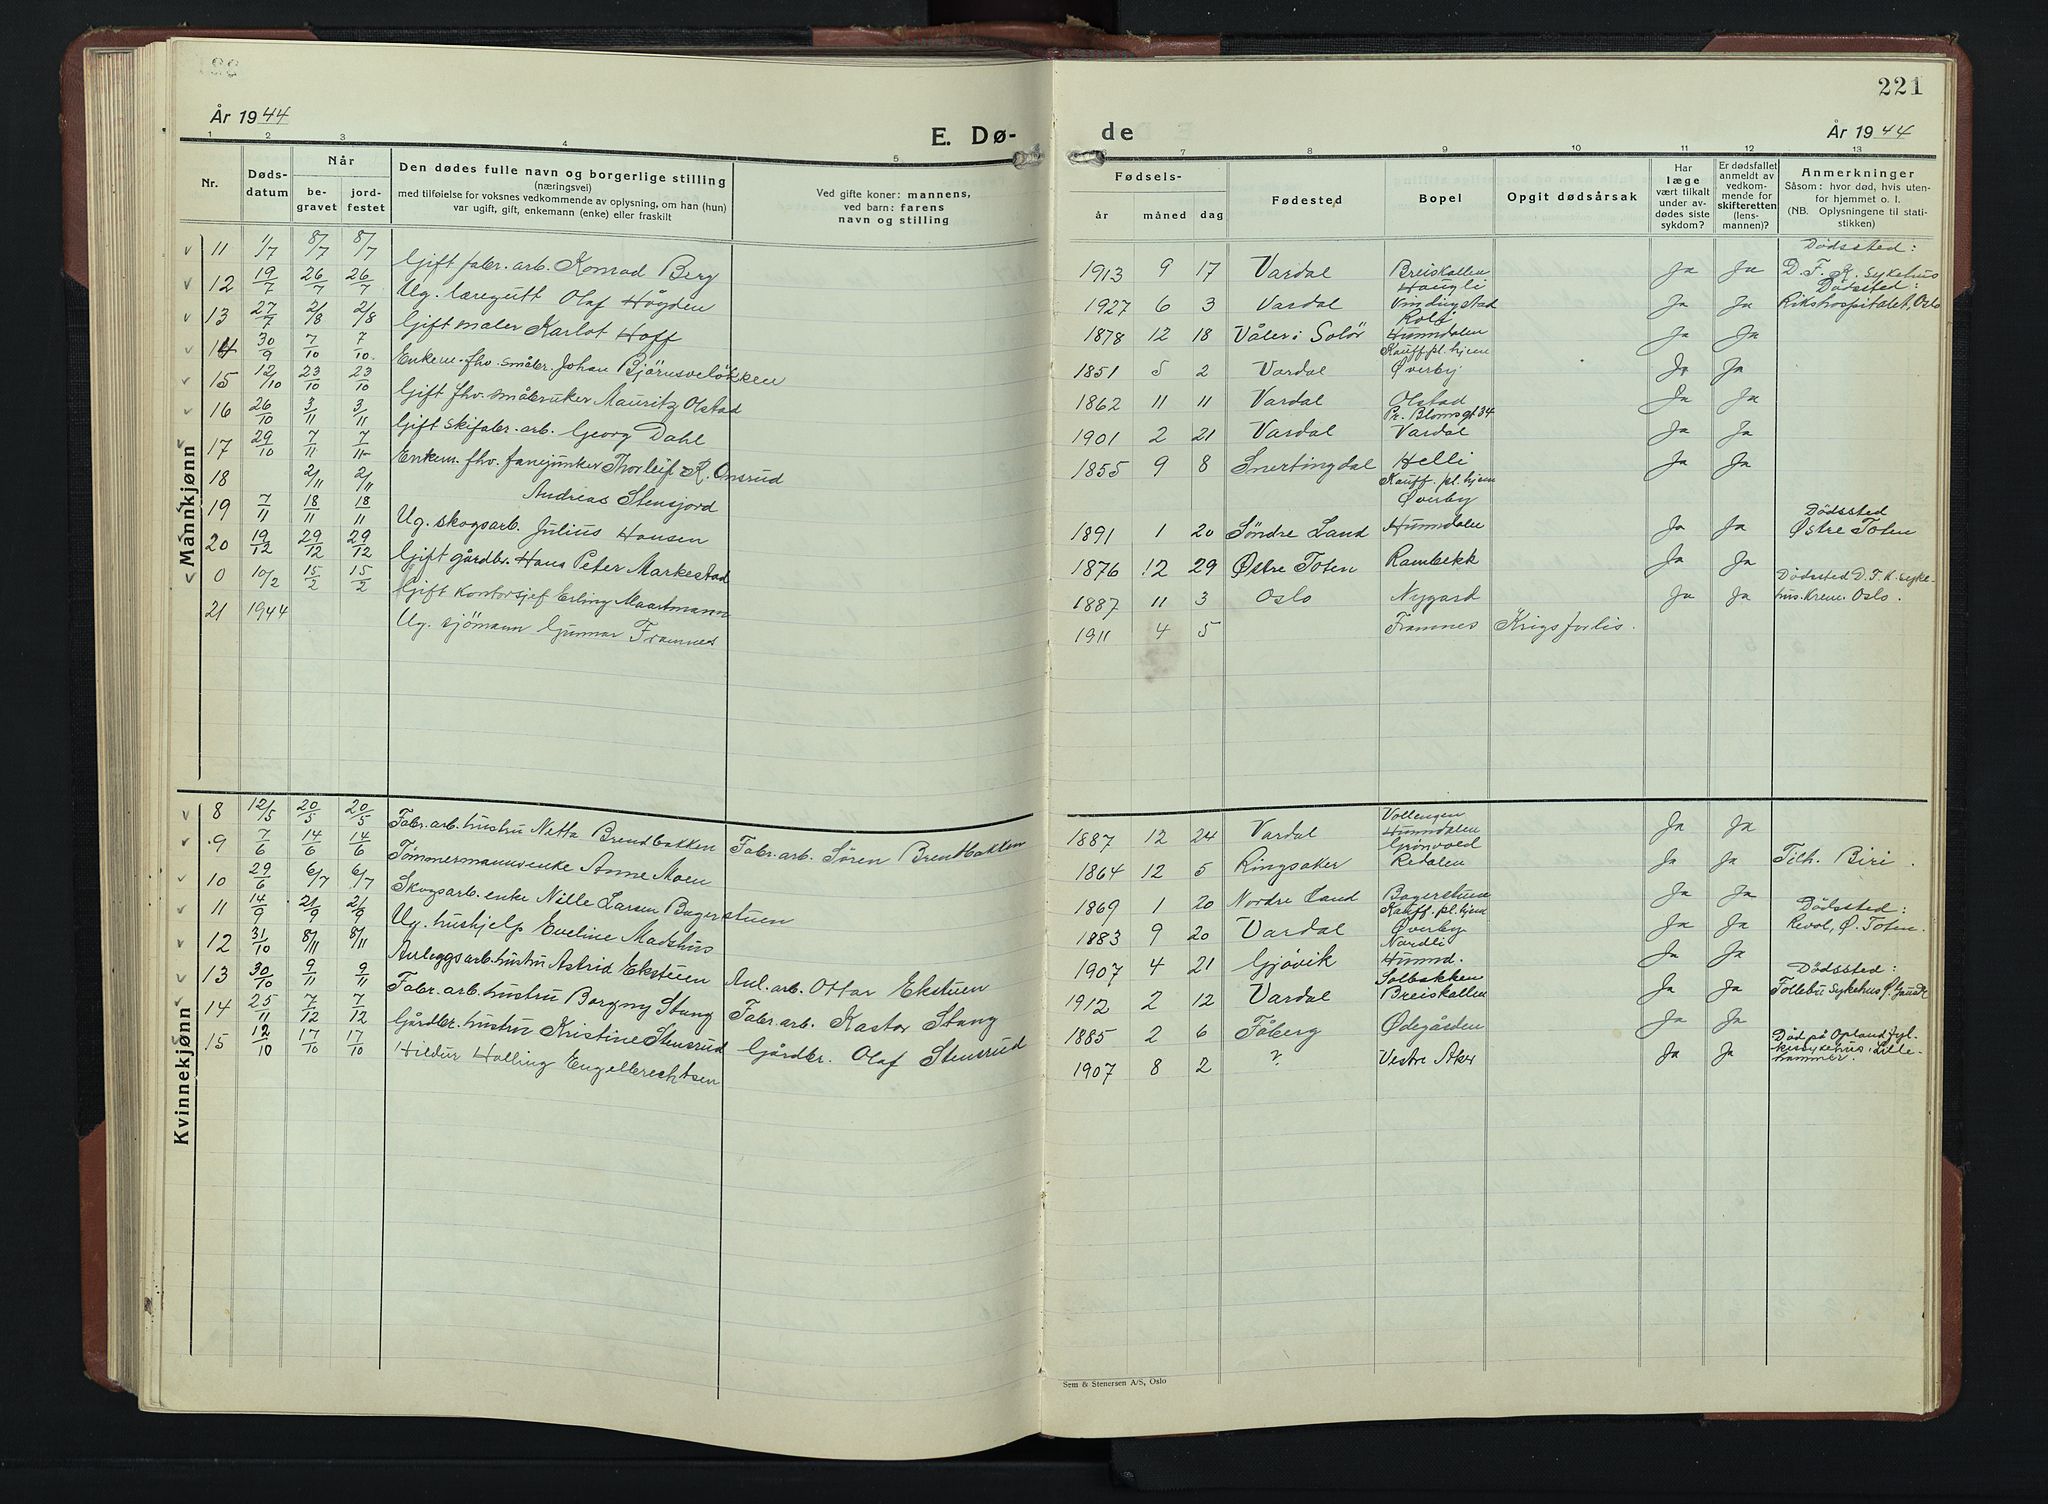 221
År 1944
E. Dø- de
År 1944
1 2 3 4 5 6 7 8 9 10 11 12 13
Nr. Døds-datum Når be-gravet jord-festet
Den dødes fulle navn og borgerlige stilling
(næringsvei)
med tilføielse for voksnes vedkommende av oplysning, om han (hun)
var ugift, gift, enkemann (enke) eller fraskilt
Ved gifte koner: mannens,
ved barn: farens
navn og stilling
Fødsels-
år måned dag
Fødested
Bopel
Opgit dødsårsak
Har læge vært tilkalt under av-dødes siste sykdom?
Er dødsfallet anmeldt av vedkom-mende for skifteretten (lens-mannen)?
Anmerkninger
Såsom: hvor død, hvis uten-
for hjemmet o. l.
(NB. Oplysningene til stati-
stikken)
Mannkjønn
11 1/7 8/7 8/7 Gift fabr. arb. Konrad Berg 1913 9 17 Vardal Breiskallen Ja Ja Dødssted: D. F. K. sykehus
12 19/7 26/7 26/7 Ug. læregutt Olaf Høgden 1927 6 3 Vardal Haugli Vindingstad Ja Ja Dødssted: Rikshospitalet, Oslo
13 27/7 2/8 2/8 Gift maler Karlot Hoff 1878 12 18 Våler i Solør Rolf Hunndalen Ja Ja
14 30/9 7/10 7/10 Enkem. fhv. småbr. Johan Bjørnsveløkken 1851 5 2 Vardal Kauff. pl. hjem Øverby Ja Ja
15 12/10 23/10 23/10 Gift fhv. småbruker Mauritz Olstad 1862 11 11 Vardal Olstad Ja Ja
16 26/10 3/11 3/11 Gift skifabr. arb. Georg Dahl 1901 2 21 Vardal Pr. Bloms gt 34 Vardal Ja Ja
17 29/10 7/11 7/11 Enkem. fhv. fanejunker Thorleif R. Onsrud 1855 9 8 Snertingdal Helli Ja Ja
18 2/11 2/11 Andreas Stensjord Kauff. pl. hjem Øverby
19 7/11 18/11 18/11 Ug. skogsarb. Julius Hansen 1891 1 20 Søndre Land Hunndalen Ja Ja Dødssted Østre Toten
20 19/12 29/12 29/12 Gift gårdbr. Hans Peter Markestad 1876 12 29 Østre Toten Rambekk Ja Ja
0 10/2 15/2 15/2 Gift Kontorsjef Erling Maartmann 1887 11 3 Oslo Nygard Ja Ja Dødssted D. F. K. syke-hus. Krem. Oslo.
21 1944 Ug. sjömann Gunnar Framnes 1911 4 5 Framnes Krigsforlis.
Kvinnekjønn
8 12/5 20/5 20/5 Fabr. arb. hustru Netta Brendbakken Fabr. arb. Søren Brendbakken 1887 12 24 Vardal Vollengen Hunndalen Ja Ja
9 7/6 14/6 14/6 Tømmermannsenke Anne Moen 1864 12 5 Ringsaker Grønvold Redalen Ja Ja Tilh. Biri.
10 29/6 6/7 6/7 Skogsarb. enke Nille Larsen Bagerstuen 1869 1 20 Nordre Land Bagerstuen Ja Ja
11 14/9 21/9 21/9 Ug. hushjelp Eveline Madshus 1883 9 20 Vardal Kauff. pl. hjem Øverby Ja Ja Dødssted: Revol, Ø. Toten.
12 31/10 8/11 8/11 Anleggsarb. hustru Astrid Ekstuen Anl. arb. Ottar Ekstuen 1907 4 21 Gjøvik Nordli Hunnd. Ja Ja
13 30/10 9/11 9/11 Fabr. arb. hustru Borgny Stang Fabr. arb. Kastor Stang 1912 2 12 Vardal Solbakken Breiskallen Ja Ja Dødssted: Follebu sykehus Ø. Gausd.
14 25/11 7/12 7/12 Gårdbr. hustru Kristine Stensrud Gårdbr. Olaf Stensrud 1885 2 6 Fåberg Ødegården Ja Ja
15 12/10 17/10 17/10 Hildur Halling Engelbrechtsen 1907 8 2 ? Vestre Aker Ja Ja Død på Opland fyl-kessykehus, Lille-hammer.
Sem & Stenersen A/S, Oslo